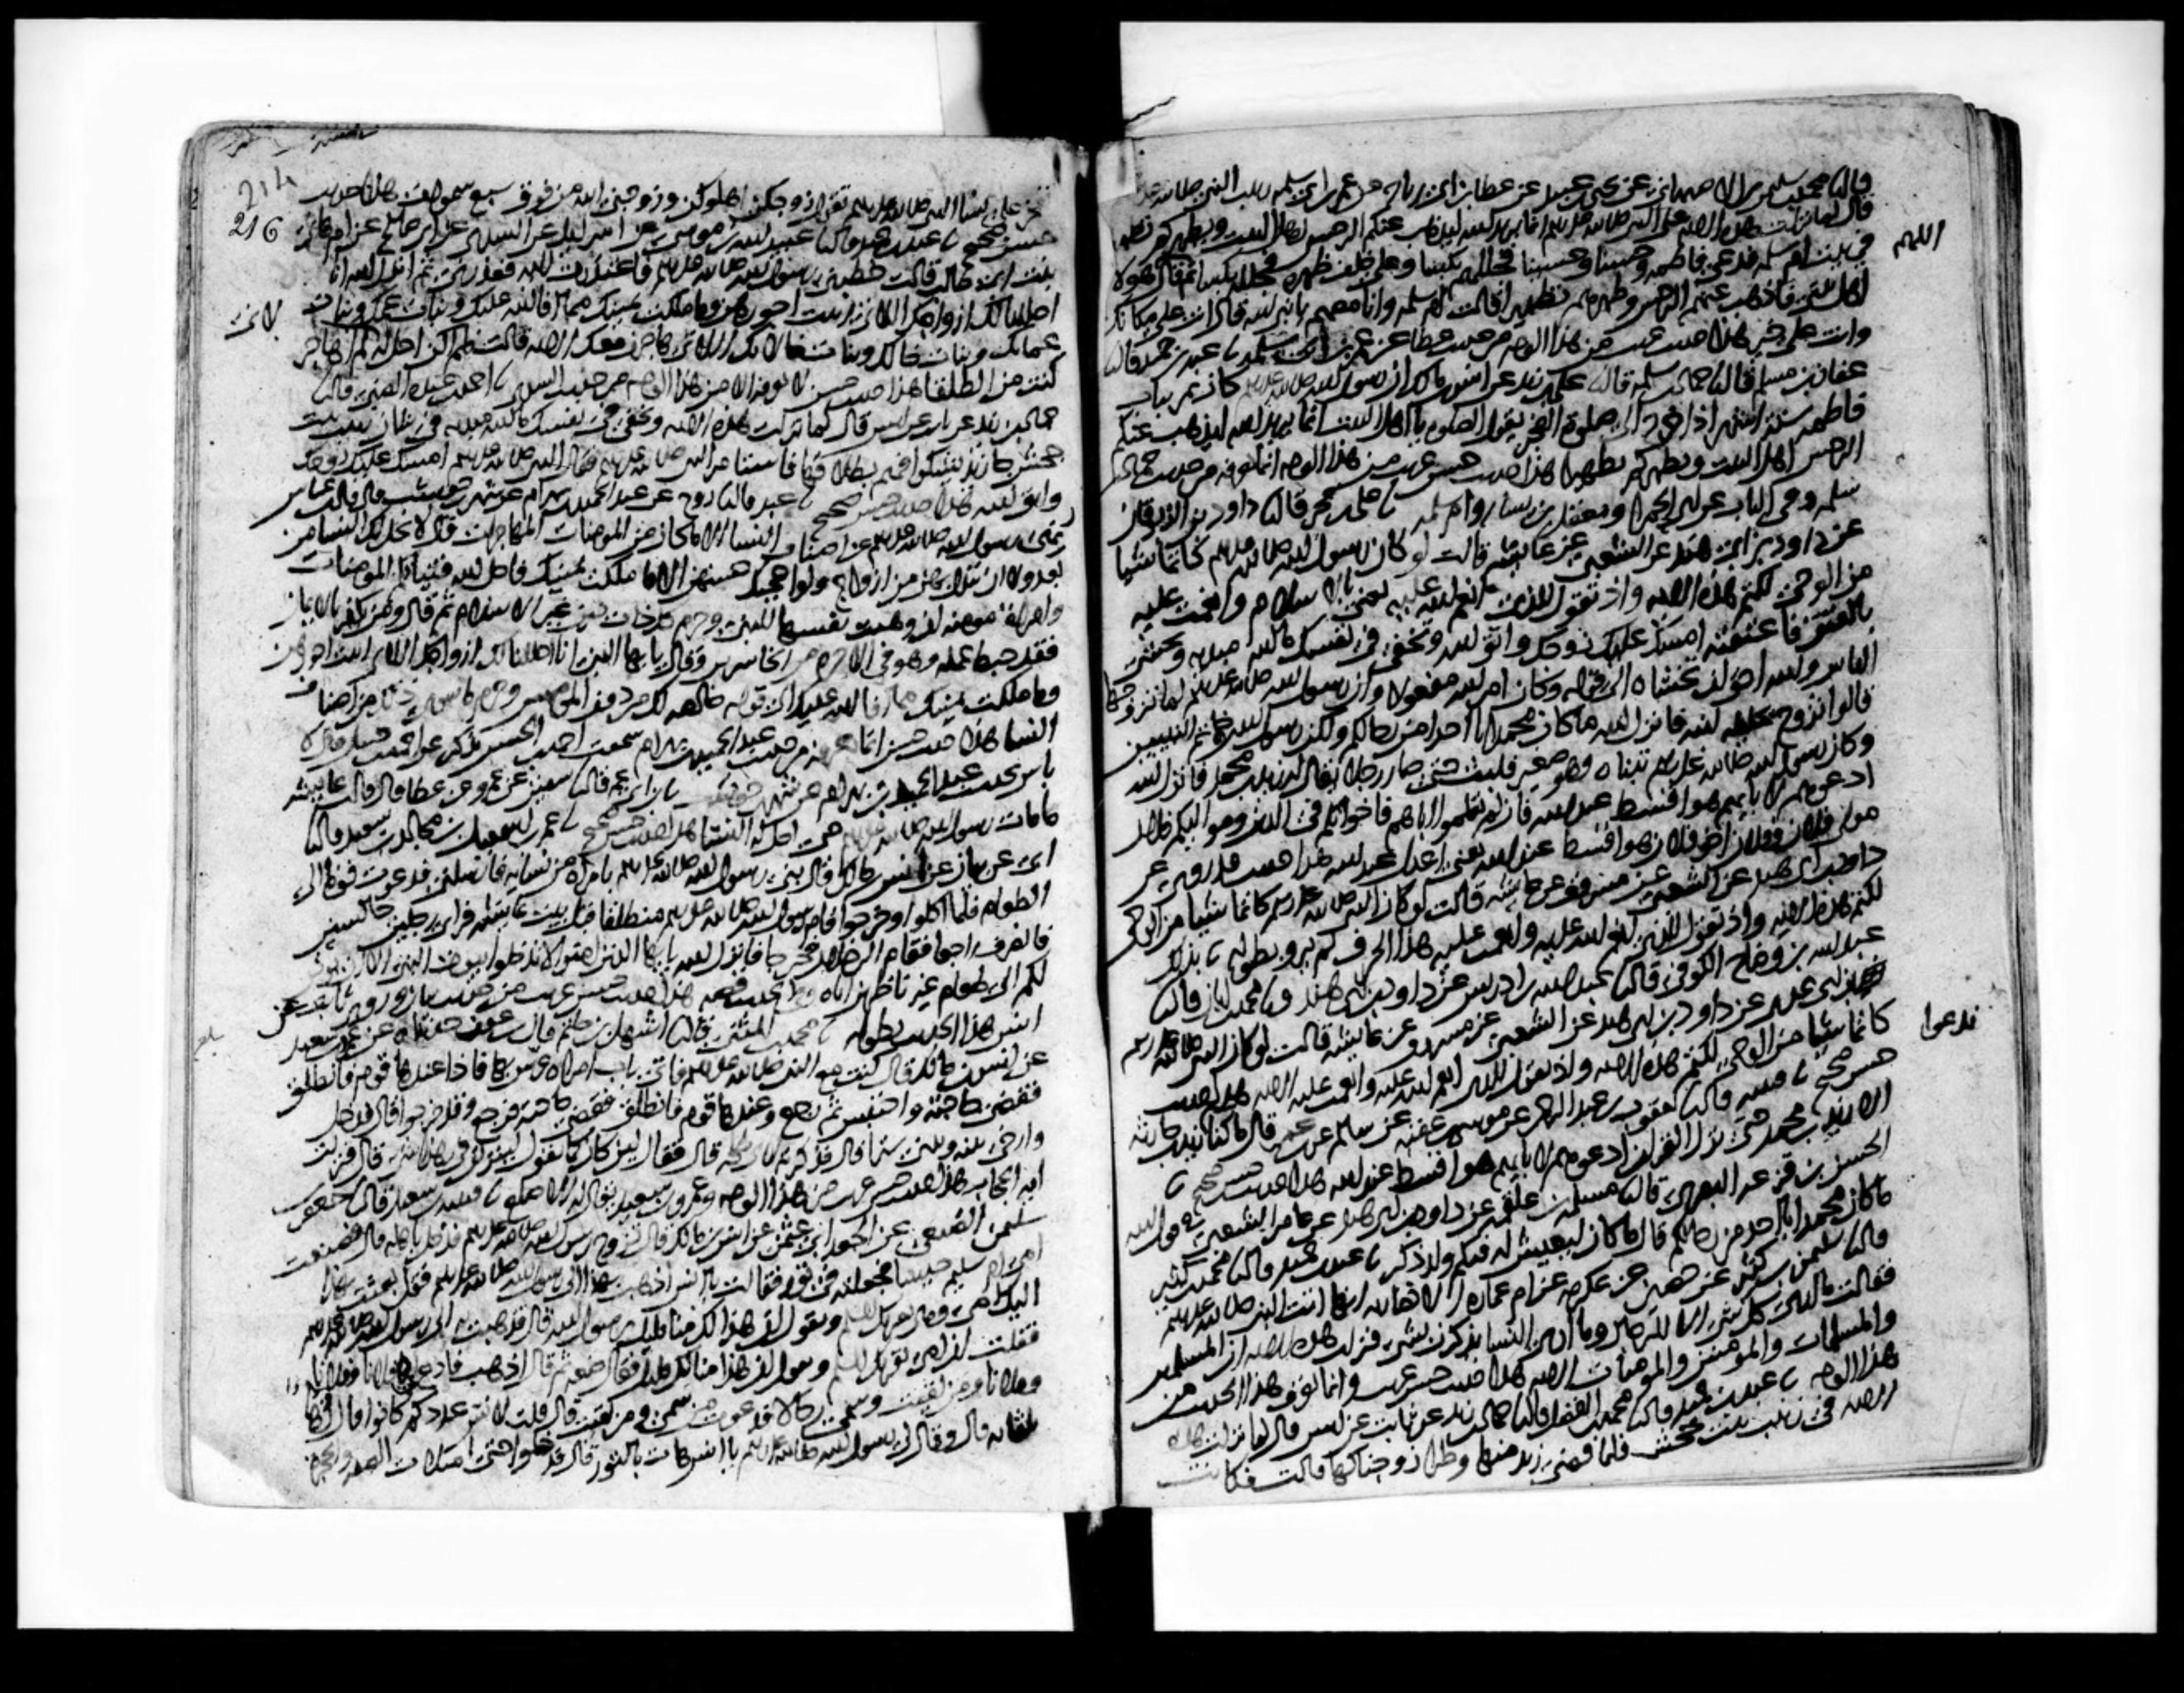 قال نا محمد بن سليمن الاصبهاني عن يحيى بن عبيد عن عطا بن ابي رباح عن عمر بن ابي سلمه ربيب النبي صلى الله عليه
قال لما نزلت هذه الايه على النبي صلى الله عليه وسلم انما يريد الله ليذهب عنكم الرجس اهل البيت ويطهركم تطهيرا
في بيت ام سلمه فدعى فاطمه وحسنا وحسينا فجللهم بكسا وعلي خلف ظهره فجلله بكسا ثم قال هولا
اللهم
اهل بيتي فاذهب عنهم الرجس وطهرهم تطهيرا قالت ام سلمه وانا معهم يا نبي الله قال انت على مكانك
وانت على خير هذا حديث غريب من هذا الوجه من حديث عطا عن عمر بن ابي سلمه نا عبد بن حميد قال نا
عفان بن مسلم قال نا حماد بن سلمه قال نا علي بن زيد عن انس بن مالك ان رسول الله صلى الله عليه وسلم كان يمر بباب
فاطمه ستة اشهر اذا خرج الى صلوة الفجر يقول الصلوه يا اهل البيت انما يريد الله ليذهب عنكم
الرجس اهل البيت ويطهركم تطهيرا هذا حديث حسن غريب من هذا الوجه انما نعرفه من حديث حماد بن
سلمه وفي الباب عن ابي الحمرا ومعقل بن يسار وام سلمه نا علي بن حجر قال نا داود بن الزبرقان
عن داود بن ابي هند عن الشعبي عن عايشه قالت لو كان رسول الله صلى الله عليه وسلم كاتما شيا
من الوحي لكتم هذه الايه واذ تقول للذي انعم الله عليه يعني بالاسلام وانعمت عليه
بالعتق فاعتقته امسك عليك زوجك واتق الله وتخفي في نفسك ما الله مبديه وتخشى
الناس والله احق ان تخشاه الى قوله وكان امر الله مفعولا وان رسول الله صلى الله عليه وسلم لما تزوجها
قالوا تزوج حليلة ابنه فانزل الله ما كان محمد ابا احد من رجالكم ولكن رسول الله وخاتم النبيين
وكان رسول الله صلى الله عليه وسلم تبناه وهو صغير فلبث حتى صار رجلا يقال له زيد بن محمد فانزل الله
ادعوهم لابايهم هو اقسط عند الله فان لم تعلموا اباهم فاخوانكم في الدين ومواليكم فلان
مولى فلان وفلان اخو فلان هو اقسط عند الله يعني اعدل عند الله هذا حديث قد روي عن
داود بن ابي هند عن الشعبي عن مسروق عن عايشه قالت لو كان النبي صلى الله عليه وسلم كاتما شيا من الوحي
لكتم هذه الايه واذ تقول للذي انعم الله عليه وانعمت عليه هذا الحرف لم يرو بطوله نا بذلك
عبد الله بن وضاح الكوفي قال نا عبد الله بن ادريس عن داود بن ابي هند ونا محمد بن ابان قال نا
ابن ابي عدي عن داود بن ابي هند عن الشعبي عن مسروق عن عايشه قالت لو كان النبي صلى الله عليه وسلم
كاتما شيا من الوحي لكتم هذه الايه واذ تقول للذي انعم الله عليه وانعمت عليه الايه هذا حديث
حسن صحيح نا قتيبه قال نا يعقوب بن عبد الرحمن عن موسى بن عقبه عن سالم عن ابن عمر قال ما كنا ندعوا زيد بن حارثه
ندعوا
الا زيد بن محمد حتى نزل القران ادعوهم لابايهم هو اقسط عند الله هذا حديث حسن صحيح نا
الحسن بن قزعه البصري قال نا مسلمه بن علقمه عن داود بن ابي هند عن عامر الشعبي في قول الله
ما كان محمد ابا احد من رجالكم قال ما كان ليعيش له فيكم ولد ذكر نا عبد بن حميد قال نا محمد بن كثير
قال نا سليمن بن كثير عن حصين عن عكرمه عن ام عماره الانصاريه انها اتت النبي صلى الله عليه وسلم
فقالت ما ارى كل شي الا للرجال وما ارى النسا يذكرن بشي فنزلت هذه الايه ان المسلمين
والمسلمات والمومنين والمومنات الايه هذا حديث حسن غريب وانما نعرف هذا الحديث من
هذا الوجه نا عبد بن حميد قال نا محمد بن الفضل قال نا حماد بن زيد عن ثابت عن انس قال لما نزلت هذه
الايه في زينب بنت جحش فلما قضى زيد منها وطرا زوجناكها قال فكانت
214
216
تفخر على نسا النبي صلى الله عليه وسلم تقول زوجكن اهلوكن وزوجني الله من فوق سبع سموات هذا حديث
حسن صحيح نا عبد بن حميد قال نا عبيد الله بن موسى عن اسرائيل عن السدي عن ابي صالح عن ام هاني
بنت ابي طالب قالت خطبني رسول الله صلى الله عليه وسلم فاعتذرت اليه فعذرني ثم انزل الله انا
احللنا لك ازواجك اللاتي اتيت اجورهن وما ملكت يمينك مما افا الله عليك وبنات عمك وبنات
لاني
عماتك وبنات خالك وبنات خالاتك اللاتي هاجرن معك الايه قالت فلم اكن احل له لم اهاجر
كنت من الطلقا هذا حديث حسن لا نعرفه الا من هذا الوجه من حديث السدي نا احمد بن عبده الضبي قال نا
حماد بن زيد عن ثابت عن انس قال لما نزلت هذه الايه وتخفي في نفسك ما الله مبديه في شان زينب بنت
جحش جا زيد يشكوا فهم بطلاقها فاستامر النبي صلى الله عليه وسلم فقال النبي صلى الله عليه وسلم امسك عليك زوجك
واتق الله هذا حديث حسن صحيح نا عبد قال نا روح عن عبد الحميد بن بهرام عن شهر بن حوشب قال قال ابن عباس
نهي رسول الله صلى الله عليه وسلم عن اصناف النسا الا ما كان من المومنات المهاجرات قال لا يحل لك النسا من
بعد ولا ان تبدل بهن من ازواج ولو اعجبك حسنهن الا ما ملكت يمينك فاحل الله فتياتكم المومنات
وامراة مومنه ان وهبت نفسها للنبي وحرم كل ذات دين غير الاسلام ثم قال ومن يكفر بالايمان
فقد حبط عمله وهو في الاخره من الخاسرين وقال يا ايها النبي انا احللنا لك ازواجك اللاتي اتيت اجورهن
وما ملكت يمينك مما افا الله عليك الى قوله خالصه لك من دون المومنين وحرم ما سوى ذلك من اصناف
النسا هذا حديث حسن انما نعرفه من حديث عبد الحميد بن بهرام سمعت احمد بن الحسن يذكر عن احمد بن حنبل قال لا
باس بحديث عبد الحميد بن بهرام عن شهر بن حوشب نا ابن ابي عمر قال نا سفين عن عمرو عن عطا قال قالت عايشه
ما مات رسول الله صلى الله عليه وسلم حتى احل له النسا هذا حديث حسن صحيح نا عمر بن اسمعيل بن مجالد بن سعيد قال نا
ابي عن بيان عن انس بن مالك قال بنى رسول الله صلى الله عليه وسلم بامراة من نسايه فارسلني فدعوت قوما الى
الطعام فلما اكلوا وخرجوا قام رسول الله صلى الله عليه وسلم منطلقا قبل بيت عايشه فراى رجلين جالسين
فانصرف راجعا فقام الرجلان فخرجا فانزل الله يا ايها الذين امنوا لا تدخلوا بيوت النبي الا ان يوذن
لكم الى طعام غير ناظرين اناه وفي الحديث قصه هذا حديث حسن غريب من حديث بيان وروى ثابت عن
انس هذا الحديث بطوله نا محمد بن المثنى قال نا اشهل بن حاتم قال ابن عون حدثناه عن عمرو بن سعيد
عن انس بن مالك قال كنت مع النبي صلى الله عليه وسلم فاتى باب امراة عرس بها فاذا عندها قوم فانطلق
فقضى حاجته واحتبس ثم رجع وعندها قوم فانطلق فقضى حاجته فرجع وقد خرجوا قال فدخل
وارخى بيني وبينه سترا قال فذكرته لابي طلحه قال فقال لين كان كما تقول لينزلن في هذا شي قال فنزلت
ايه الحجاب هذا حديث حسن غريب من هذا الوجه وعمرو بن سعيد يقال له الاصلع نا قتيبه بن سعيد قال نا جعفر بن
سليمن الضبعي عن الجعد ابي عثمن عن انس بن مالك قال تزوج رسول الله صلى الله عليه وسلم فدخل باهله قال فصنعت
امي ام سليم حيسا فجعلته في تور فقالت يا انس اذهب بهذا الى رسول الله صلى الله عليه وسلم فقل بعثت بهذا
اليك امي وهي تقريك السلم وتقول ان هذا لك منا قليل يا رسول الله قال فذهبت به الى رسول الله صلى الله عليه وسلم
فقلت ان امي تقريك السلم وتقول ان هذا منا لك قليل فقال ضعه ثم قال اذهب فادع لي فلانا وفلانا
وفلانا ومن لقيت وسمى رجالا فدعوت من سمى ومن لقيت قال قلت لانس عدد كم كانوا قال زها
ثلثمايه قال وقال لي رسول الله صلى الله عليه وسلم يا انس هات بالتور قال فدخلوا حتى امتلات الصفه والحجره